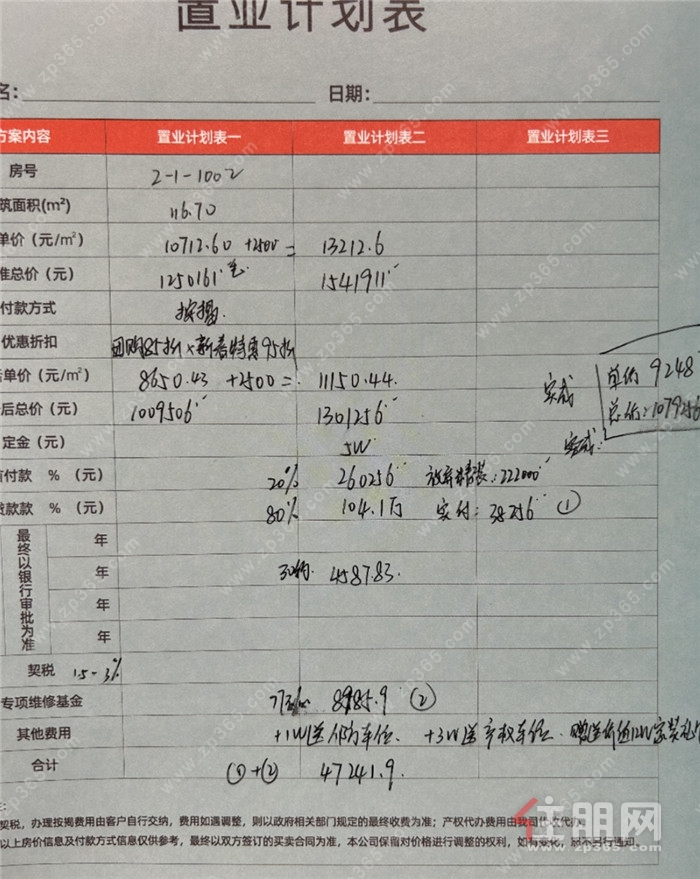 置业计划表
名: 日期:
方案内容 置业计划表一 置业计划表二 置业计划表三
房号 2-1-1002
筑面积(m²) 116.70
单价（元/m²） 10712.60 +2500 = 13212.6
准总价（元） 1250161 1541911
付款方式 按揭.
优惠折扣 团购85折×新春特惠95折
后单价（元/m²） 8650.43 +2500 = 11150.44. 实成 单价 9248
后总价（元） 1009506 1301256 总价:1079256
定金（元） 5W 实成:
首付款 %（元） 20% 260256 放弃精装:222000
贷款款 %（元） 80% 104.1万 实付:38256 ①
最终以银行审批为准
年
年 30年 4587.83.
年
年
契税 1.5-3%
专项维修基金 8985.9 ②
其他费用 +1W送人防车位、+3W送产权车位、赠送价值12W家装礼包
合计 ①+② 47241.9.
注:
契税，办理按揭费用由客户自行交纳，费用如遇调整，则以政府相关部门规定的最终收费为准；产权代办费用由我司代收代办。
以上房价信息及付款方式信息仅供参考，最终以双方签订的买卖合同为准，本公司保留对价格进行调整的权利，如有变化，恕不另行通知。
住朋网
www.zp365.com